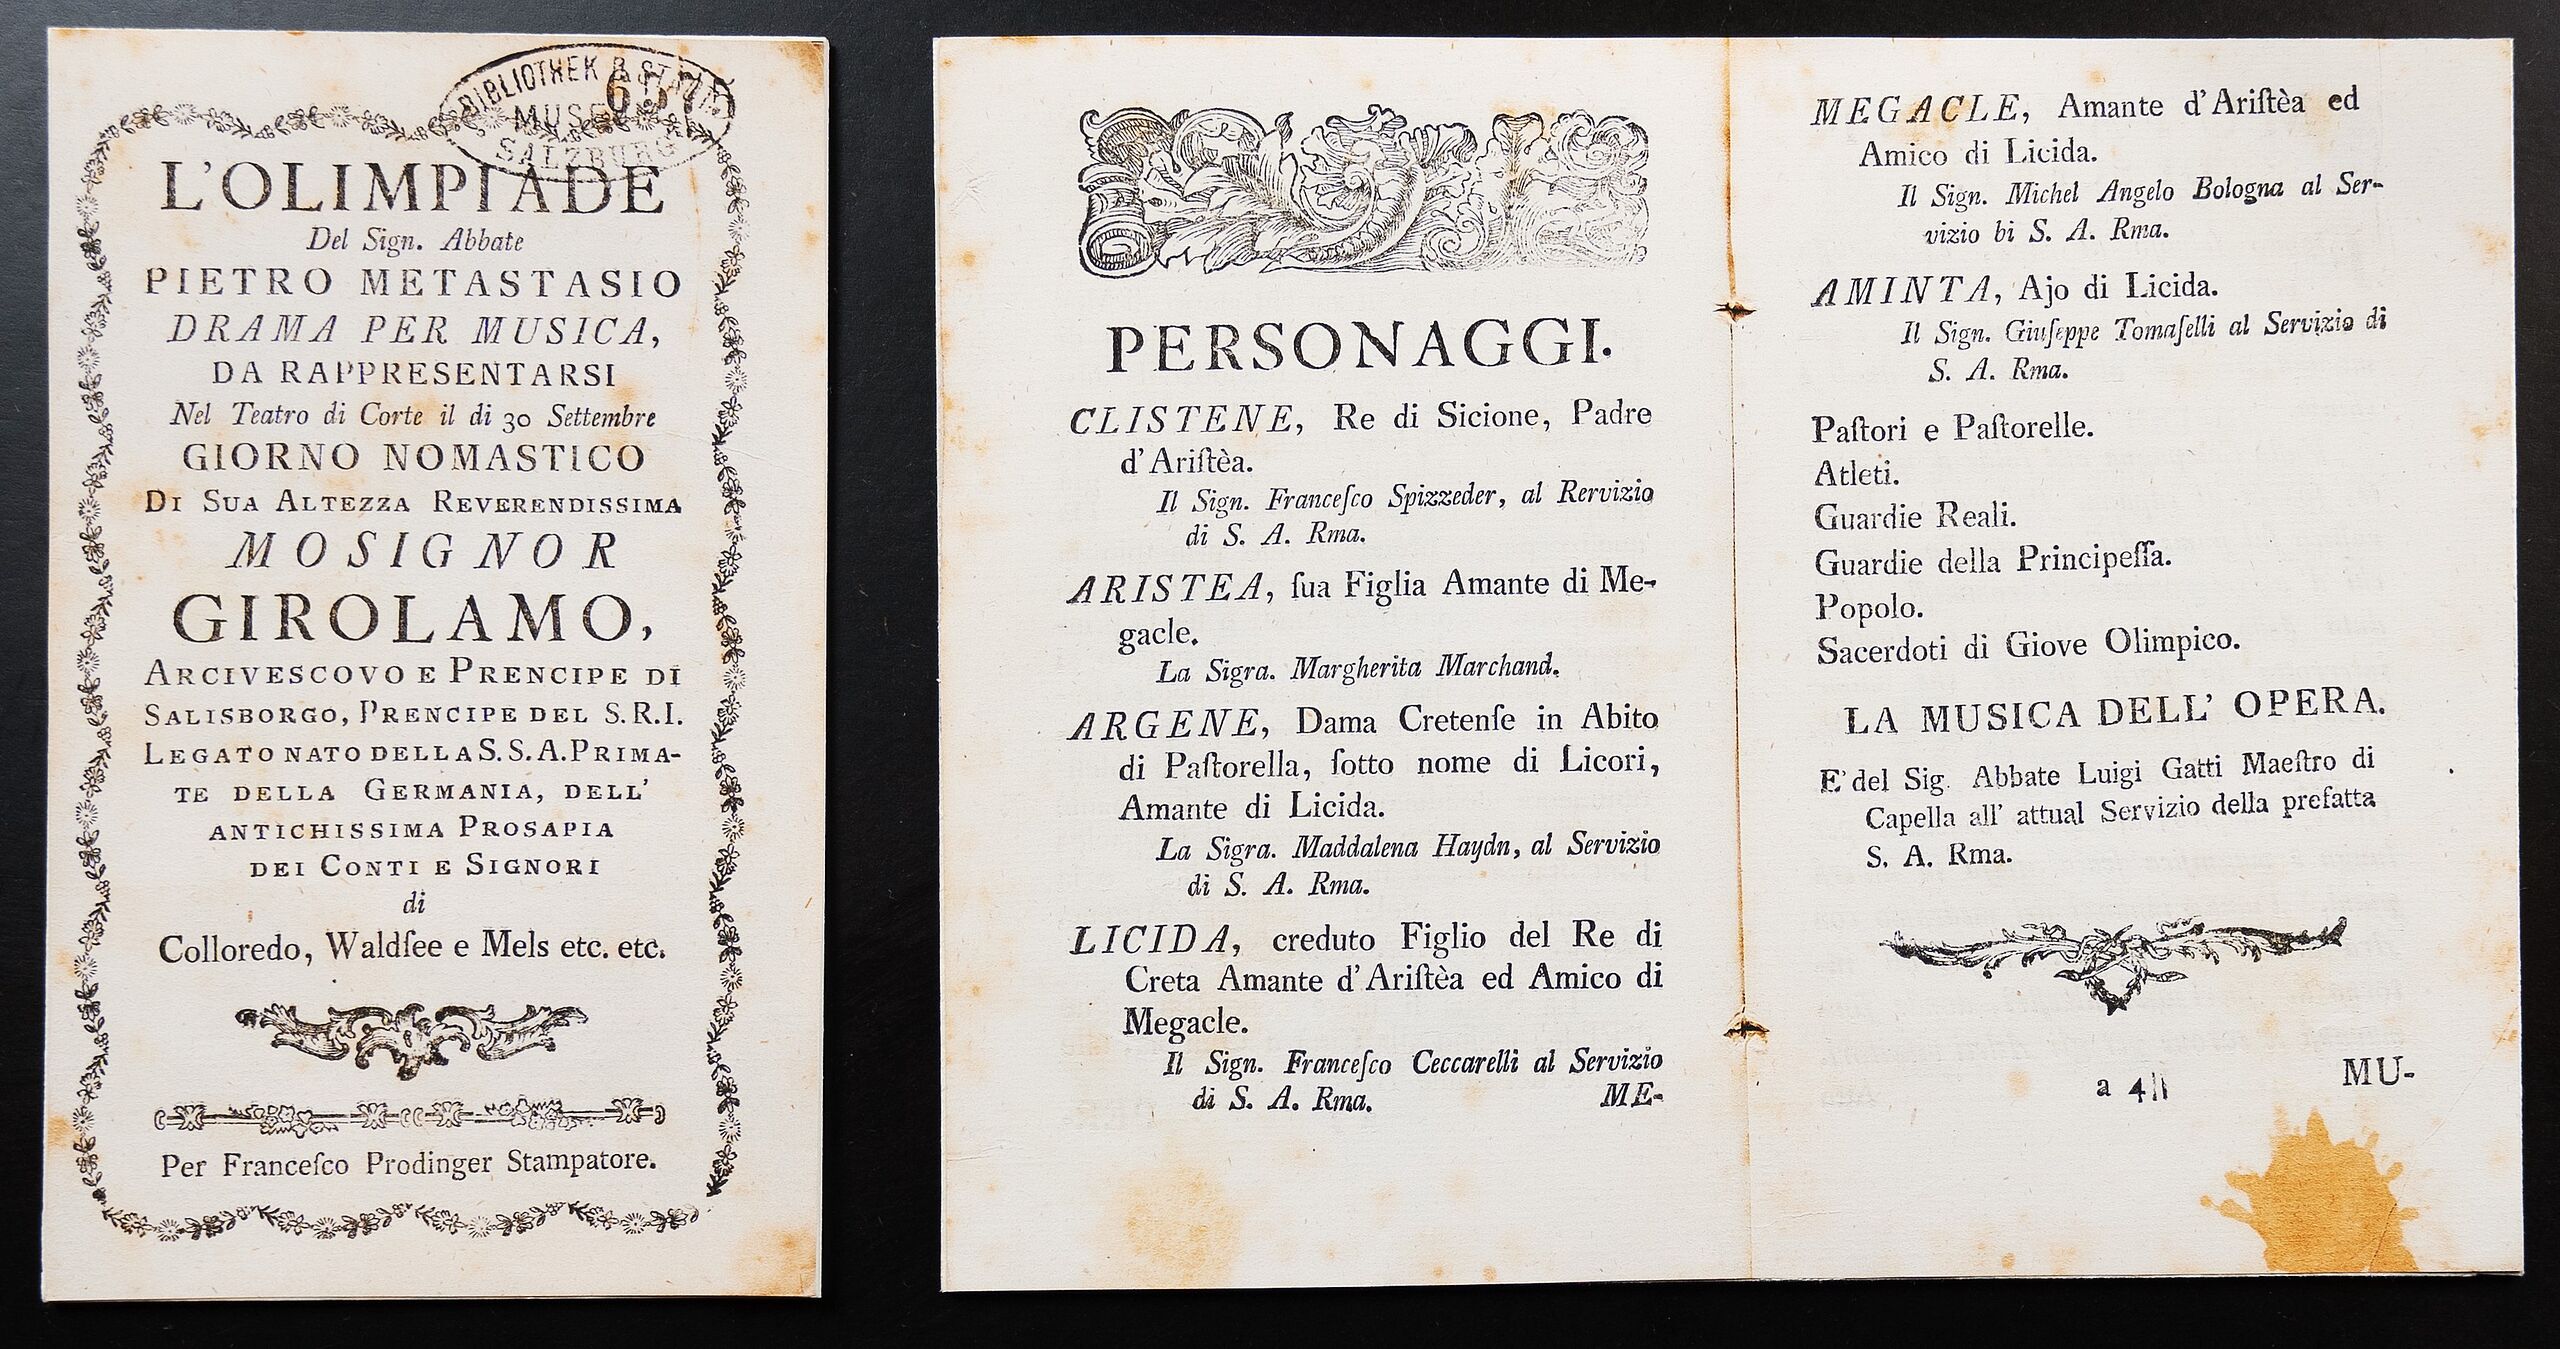 BIBLIOTHEK
657
MUSE
SALZBURG
L'OLIMPIADE
Del Sign. Abbate
PIETRO METASTASIO
DRAMA PER MUSICA,
DA RAPPRESENTARSI
Nel Teatro di Corte il di 30 Settembre
GIORNO NOMASTICO
DI SUA ALTEZZA REVERENDISSIMA
MOSIGNOR
GIROLAMO,
ARCIVESCOVO E PRENCIPE DI
SALISBORGO, PRENCIPE DEL S.R.I.
LEGATO NATO DELLA S.S.A. PRIMA-
TE DELLA GERMANIA, DELL'
ANTICHISSIMA PROSAPIA
DEI CONTI E SIGNORI
di
Colloredo, Waldſee e Mels etc. etc.
Per Franceſco Prodinger Stampatore.
PERSONAGGI.
CLISTENE, Re di Sicione, Padre
d'Ariſtèa.
Il Sign. Franceſco Spizzeder, al Rervizio
di S. A. Rma.
ARISTEA, ſua Figlia Amante di Me-
gacle.
La Sigra. Margherita Marchand.
ARGENE, Dama Cretenſe in Abito
di Paſtorella, ſotto nome di Licori,
Amante di Licida.
La Sigra. Maddalena Haydn, al Servizio
di S. A. Rma.
LICIDA, creduto Figlio del Re di
Creta Amante d'Ariſtèa ed Amico di
Megacle.
Il Sign. Franceſco Ceccarelli al Servizio
di S. A. Rma.
ME-
MEGACLE, Amante d'Ariſtèa ed
Amico di Licida.
Il Sign. Michel Angelo Bologna al Ser-
vizio bi S. A. Rma.
AMINTA, Ajo di Licida.
Il Sign. Giuſeppe Tomaſelli al Servizio di
S. A. Rma.
Paſtori e Paſtorelle.
Atleti.
Guardie Reali.
Guardie della Principeſſa.
Popolo.
Sacerdoti di Giove Olimpico.
LA MUSICA DELL' OPERA.
E' del Sig. Abbate Luigi Gatti Maeſtro di
Capella all' attual Servizio della prefatta
S. A. Rma.
a 4
MU-